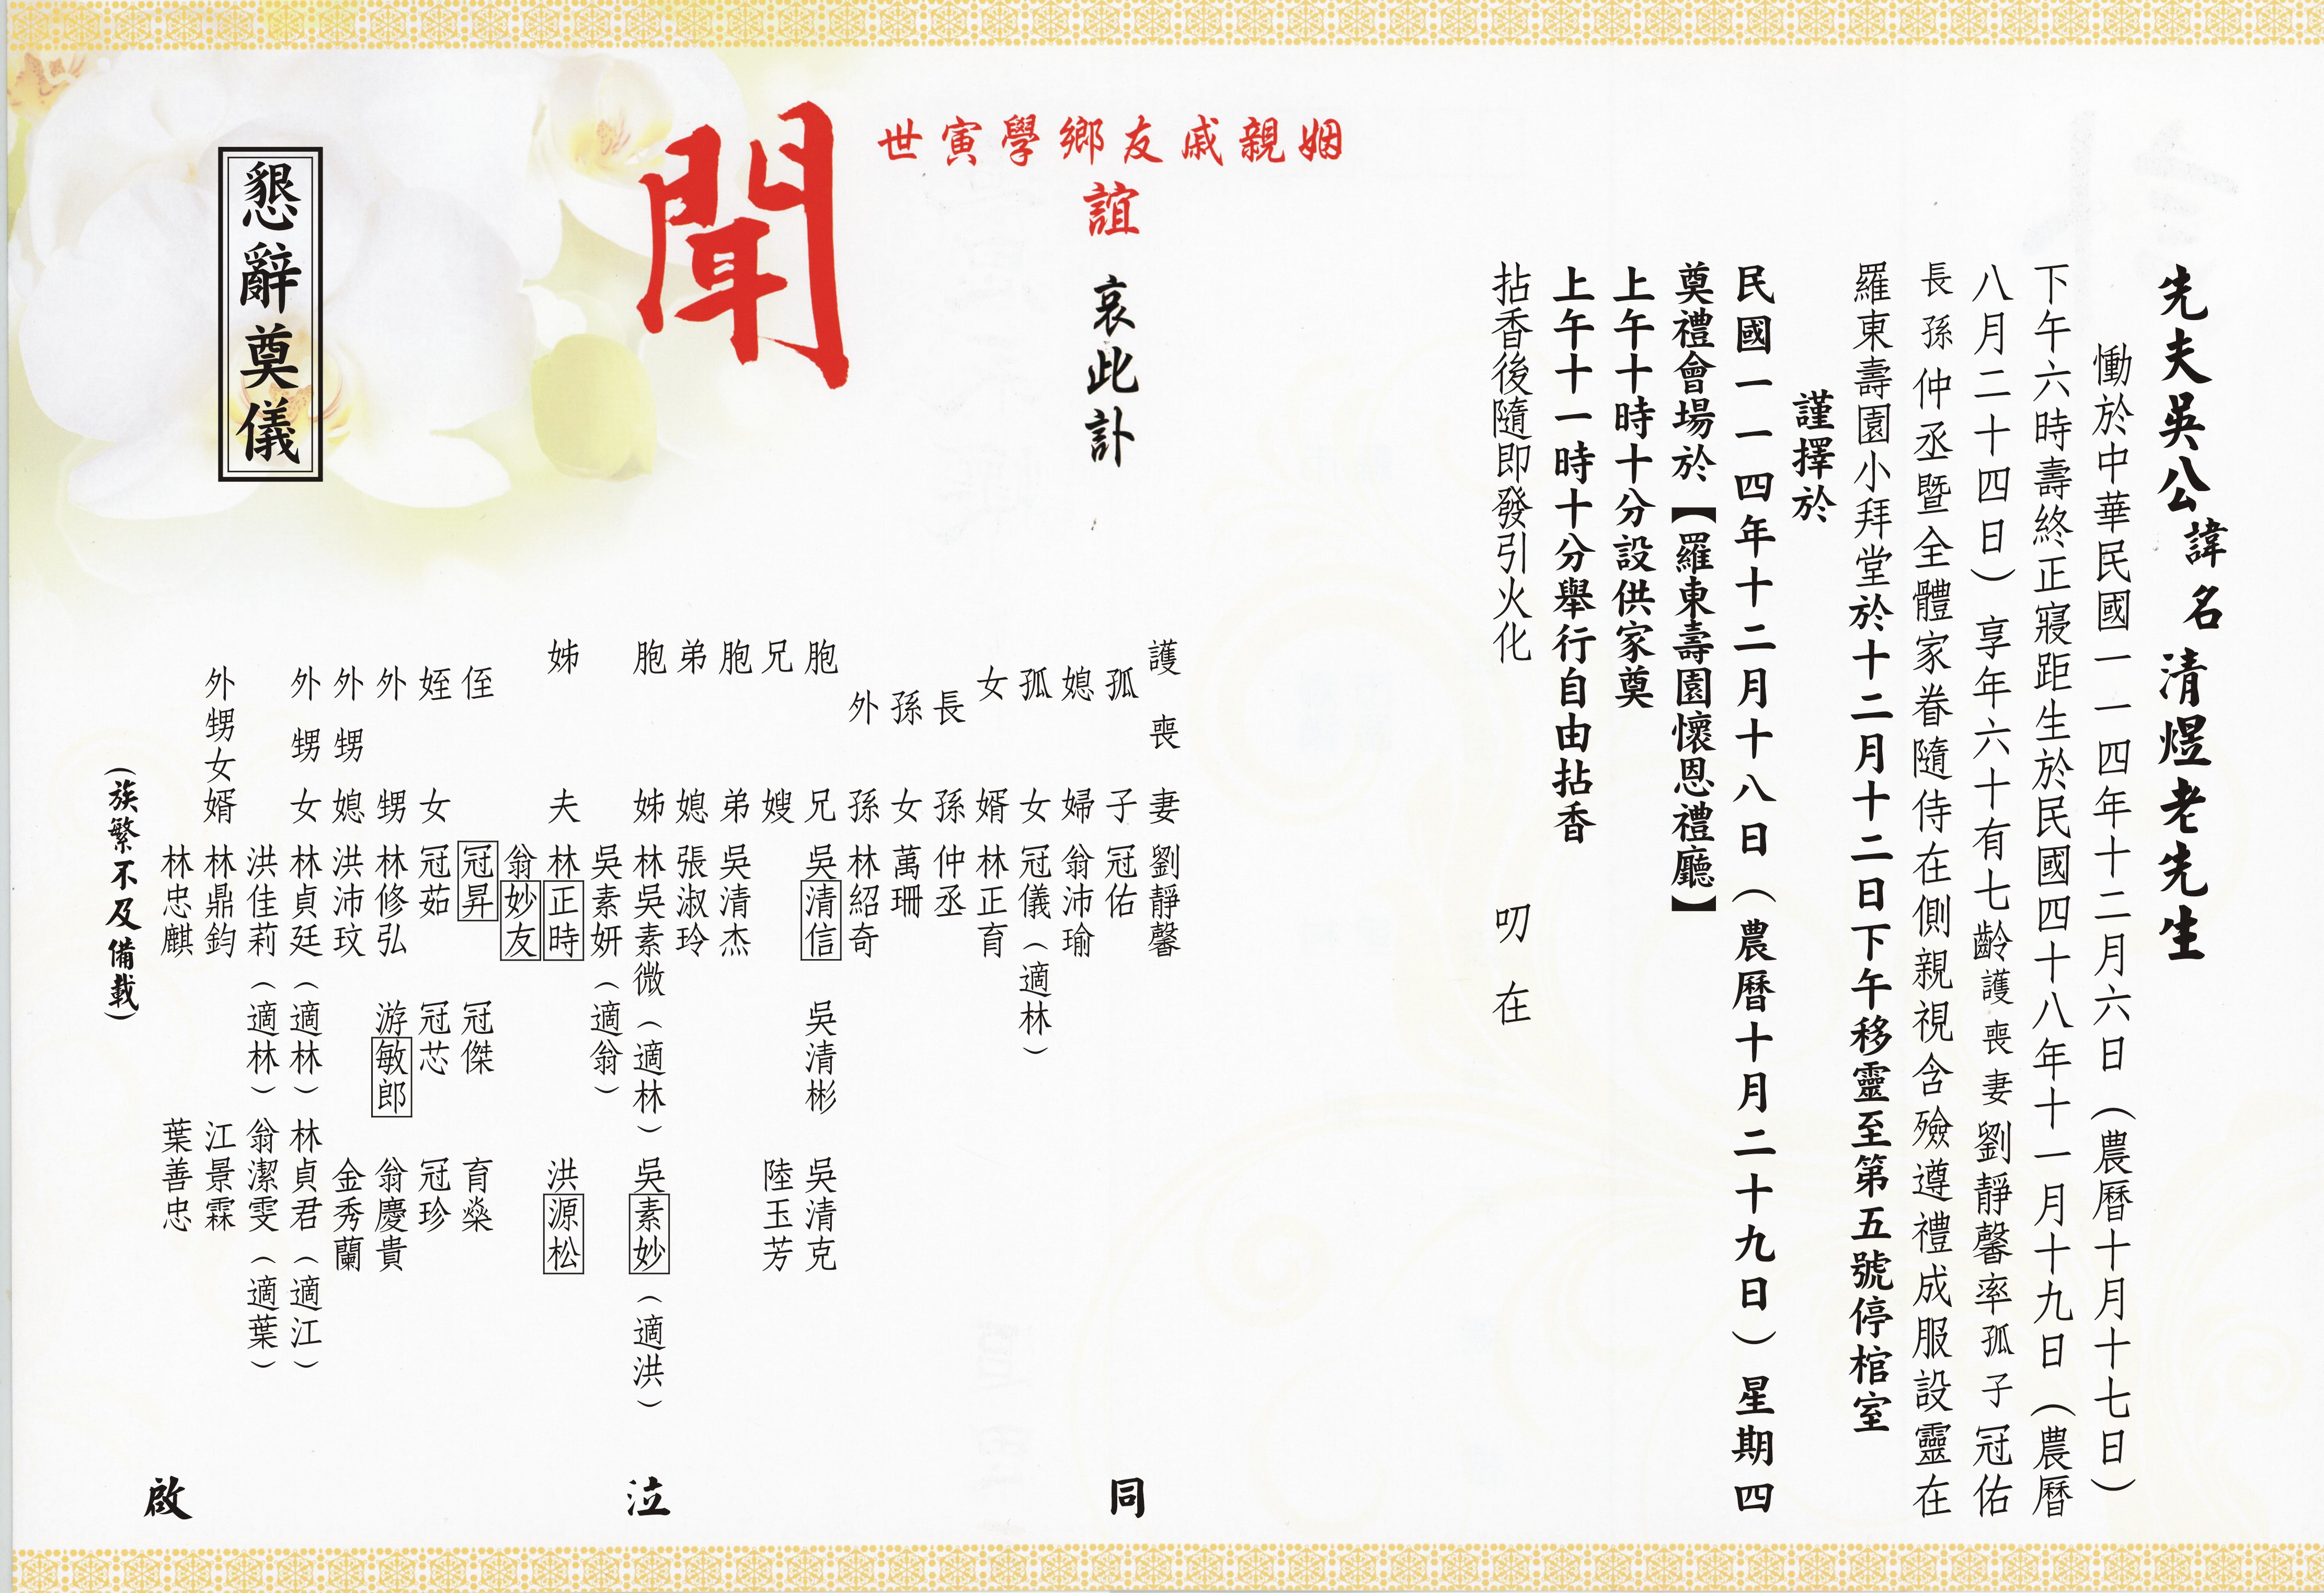 先夫吳公諱名清煜老先生
慟於中華民國一一四年十二月六日（農曆十月十七日）
下午六時壽終正寢距生於民國四十八年十一月十九日（農曆
八月二十四日）享年六十有七齡護喪妻劉靜馨率孤子冠佑
長孫仲丞暨全體家眷隨侍在側親視含殮遵禮成服設靈在
羅東壽園小拜堂於十二月十二日下午移靈至第五號停棺室
謹擇於
民國一一四年十二月十八日（農曆十月二十九日）星期四
奠禮會場於【羅東壽園懷恩禮廳】
上午十時十分設供家奠
上午十一時十分舉行自由拈香
拈香後隨即發引火化
叨在
姻親戚友鄉學寅世
誼
哀此訃
聞
護喪妻 劉靜馨
孤子 冠佑
媳婦 翁沛瑜
孤女 冠儀（適林）
女婿 林正育
長孫 仲丞
孫女 萬珊
外孫 林紹奇
胞兄 吳清信 吳清彬 吳清克
兄嫂 陸玉芳
胞弟 吳清杰
弟媳 張淑玲
胞姊 林吳素微（適林） 吳素妙（適洪）
吳素妍（適翁）
姊夫 林正時 洪源松
翁妙友
侄 冠昇 冠傑 育燊
姪女 冠茹 冠芯 冠珍
外甥 林修弘 游敏郎 翁慶貴
外甥媳 洪沛玟 金秀蘭
外甥女 林貞廷（適林） 林貞君（適江）
洪佳莉（適林） 翁潔雯（適葉）
外甥女婿 林鼎鈞 江景霖
林忠麒 葉善忠
（族繁不及備載）
同泣啟
懇辭奠儀